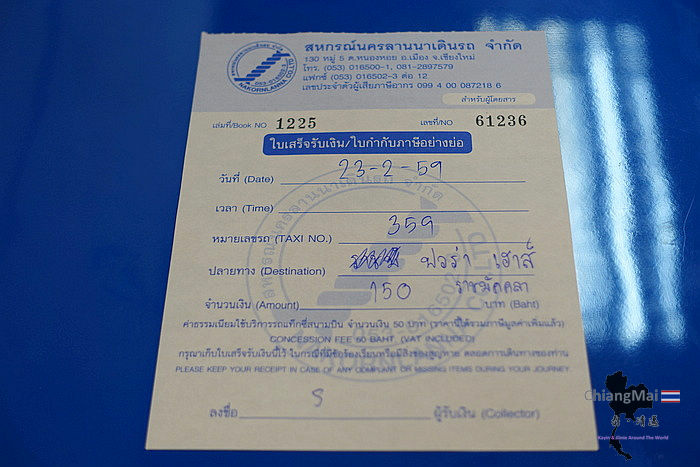 สหกรณ์นครลานนาเดินรถ จำกัด
130 หมู่ 5 ต.หนองหอย อ.เมือง จ.เชียงใหม่
โทร. (053) 016500-1, 081-2897579
แฟกซ์ (053) 016502-3 ต่อ 12
เลขประจำตัวผู้เสียภาษีอากร 099 4 00 087218 6
สำหรับผู้โดยสาร
เล่มที่/Book NO 1225 เลขที่/NO 61236
ใบเสร็จรับเงิน/ใบกำกับภาษีอย่างย่อ
วันที่ (Date) 23-2-59
เวลา (Time)
หมายเลขรถ (TAXI NO.) 359
ปลายทาง (Destination) ฟอร่า เฮาส์
ราชมัคคลา
จำนวนเงิน (Amount) 150 บาท (Baht)
ค่าธรรมเนียมใช้บริการแท็กซี่สนามบิน จำนวนเงิน 50 บาท (ราคานี้ได้รวมภาษีมูลค่าเพิ่มแล้ว)
CONCESSION FEE 50 BAHT. (VAT INCLUDED)
กรุณาเก็บใบเสร็จรับเงินนี้ไว้ ในกรณีที่มีข้อร้องเรียนหรือมีสิ่งของสูญหาย ตลอดการเดินทางของท่าน
PLEASE KEEP YOUR RECEIPT IN CASE OF ANY COMPLAINT OR MISSING ITEMS DURING YOUR JOURNEY.
ลงชื่อ ผู้รับเงิน (Collector)
ChiangMai
Kevin & Almie Around The World